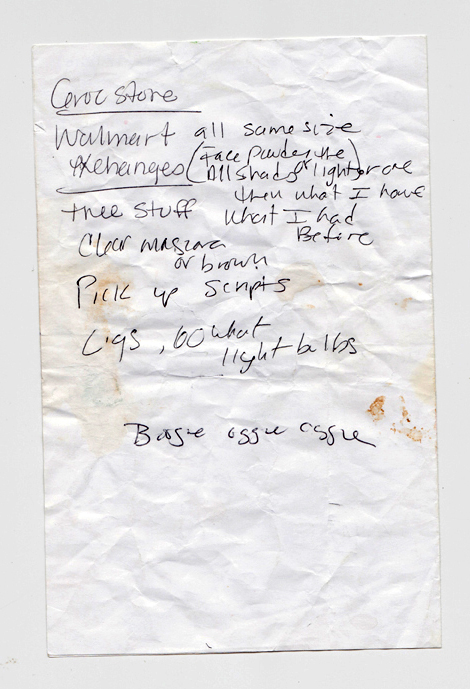 Groc store
Walmart all same size
Exchanges (Face Powder, the)
All shads or lightsor one
then what I have
tree stuff what I had
Before
Clear mascara
or brown
Pick up scripts
Cigs, 60 what
light bulbs
Boogie oggie oggie